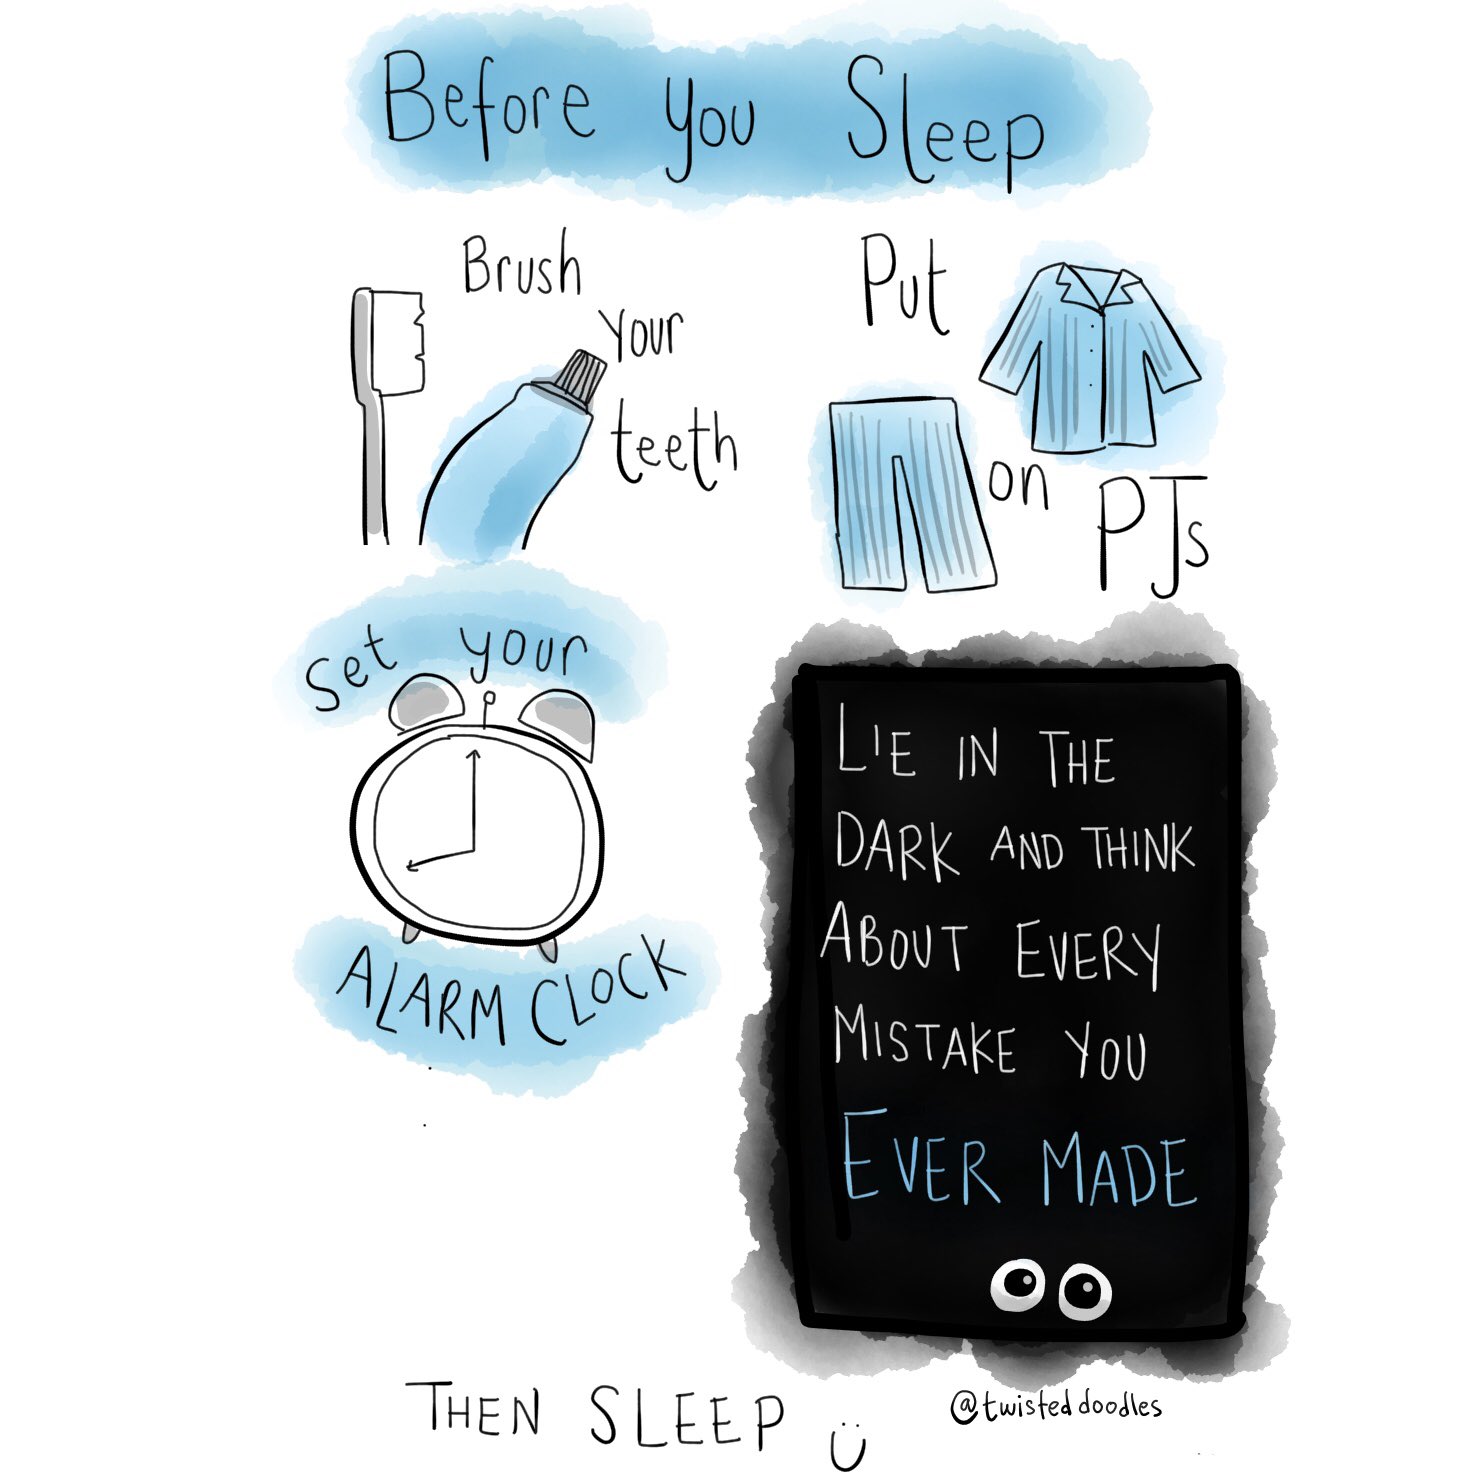 Before you Sleep
Brush
your
teeth
Put
on
PJs
Set your
ALARM CLOCK
LIE IN THE
DARK AND THINK
ABOUT EVERY
MISTAKE YOU
EVER MADE
THEN SLEEP
@twisteddoodles